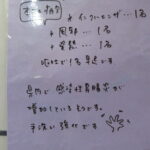 * インフルエンザ…1名
* 風邪…1名
* 発熱…1名
嘔吐で1名早退です
県内で感染性胃腸炎が
増加しているそうです。
手洗い強化です